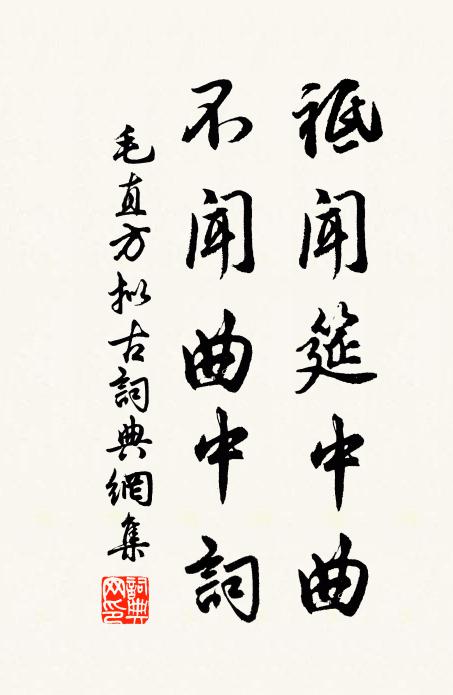 祗聞筵中曲
不聞曲中詞
毛直方擬古詞典網集
詞典网印